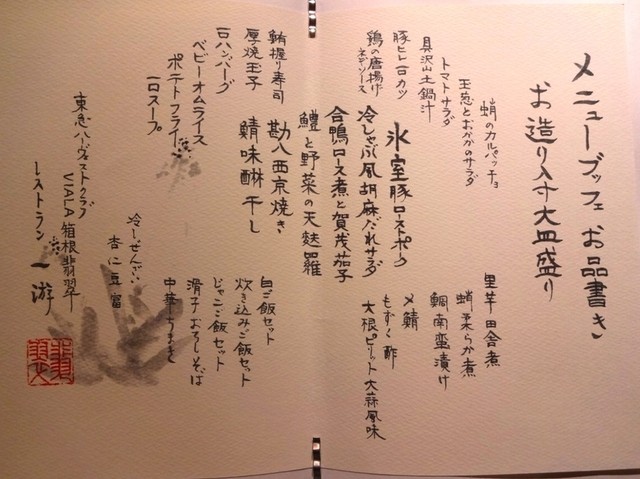 メニューブッフェ お品書き
お造り八寸大皿盛り
蛸のカルパッチョ
玉葱とおかかのサラダ
トマトサラダ
具沢山土鍋汁
豚ヒレ一口カツ
鶏の唐揚げ
ネギソース
里芋田舎煮
蛸柔らか煮
鯛南蛮漬け
〆鯖
もずく酢
大根ピリット大蒜風味
氷室豚ロースポーク
冷しゃぶ風胡麻だれサラダ
合鴨ロース煮と賀茂茄子
鱧と野菜の天麩羅
勘八西京焼き
鯖味醂干し
鮪握り寿司
厚焼玉子
一口ハンバーグ
ベビーオムライス
ポテトフライ
一口スープ
白ご飯セット
炊き込みご飯セット
じゃこご飯セット
滑子おろしそば
中華ちまき
冷しぜんざい
杏仁豆富
東急ハーヴェストクラブ
VIALA箱根翡翠
レストラン 一游